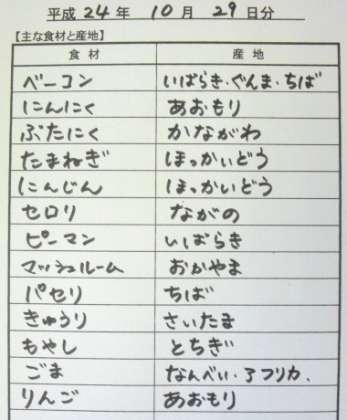 平成 24 年 10 月 29 日分
【主な食材と産地】
食材 産地
ベーコン いばらき・ぐんま・ちば
にんにく あおもり
ぶたにく かながわ
たまねぎ ほっかいどう
にんじん ほっかいどう
セロリ ながの
ピーマン いばらき
マッシュルーム おかやま
パセリ ちば
きゅうり さいたま
もやし とちぎ
ごま なんべい・アフリカ.
りんご あおもり